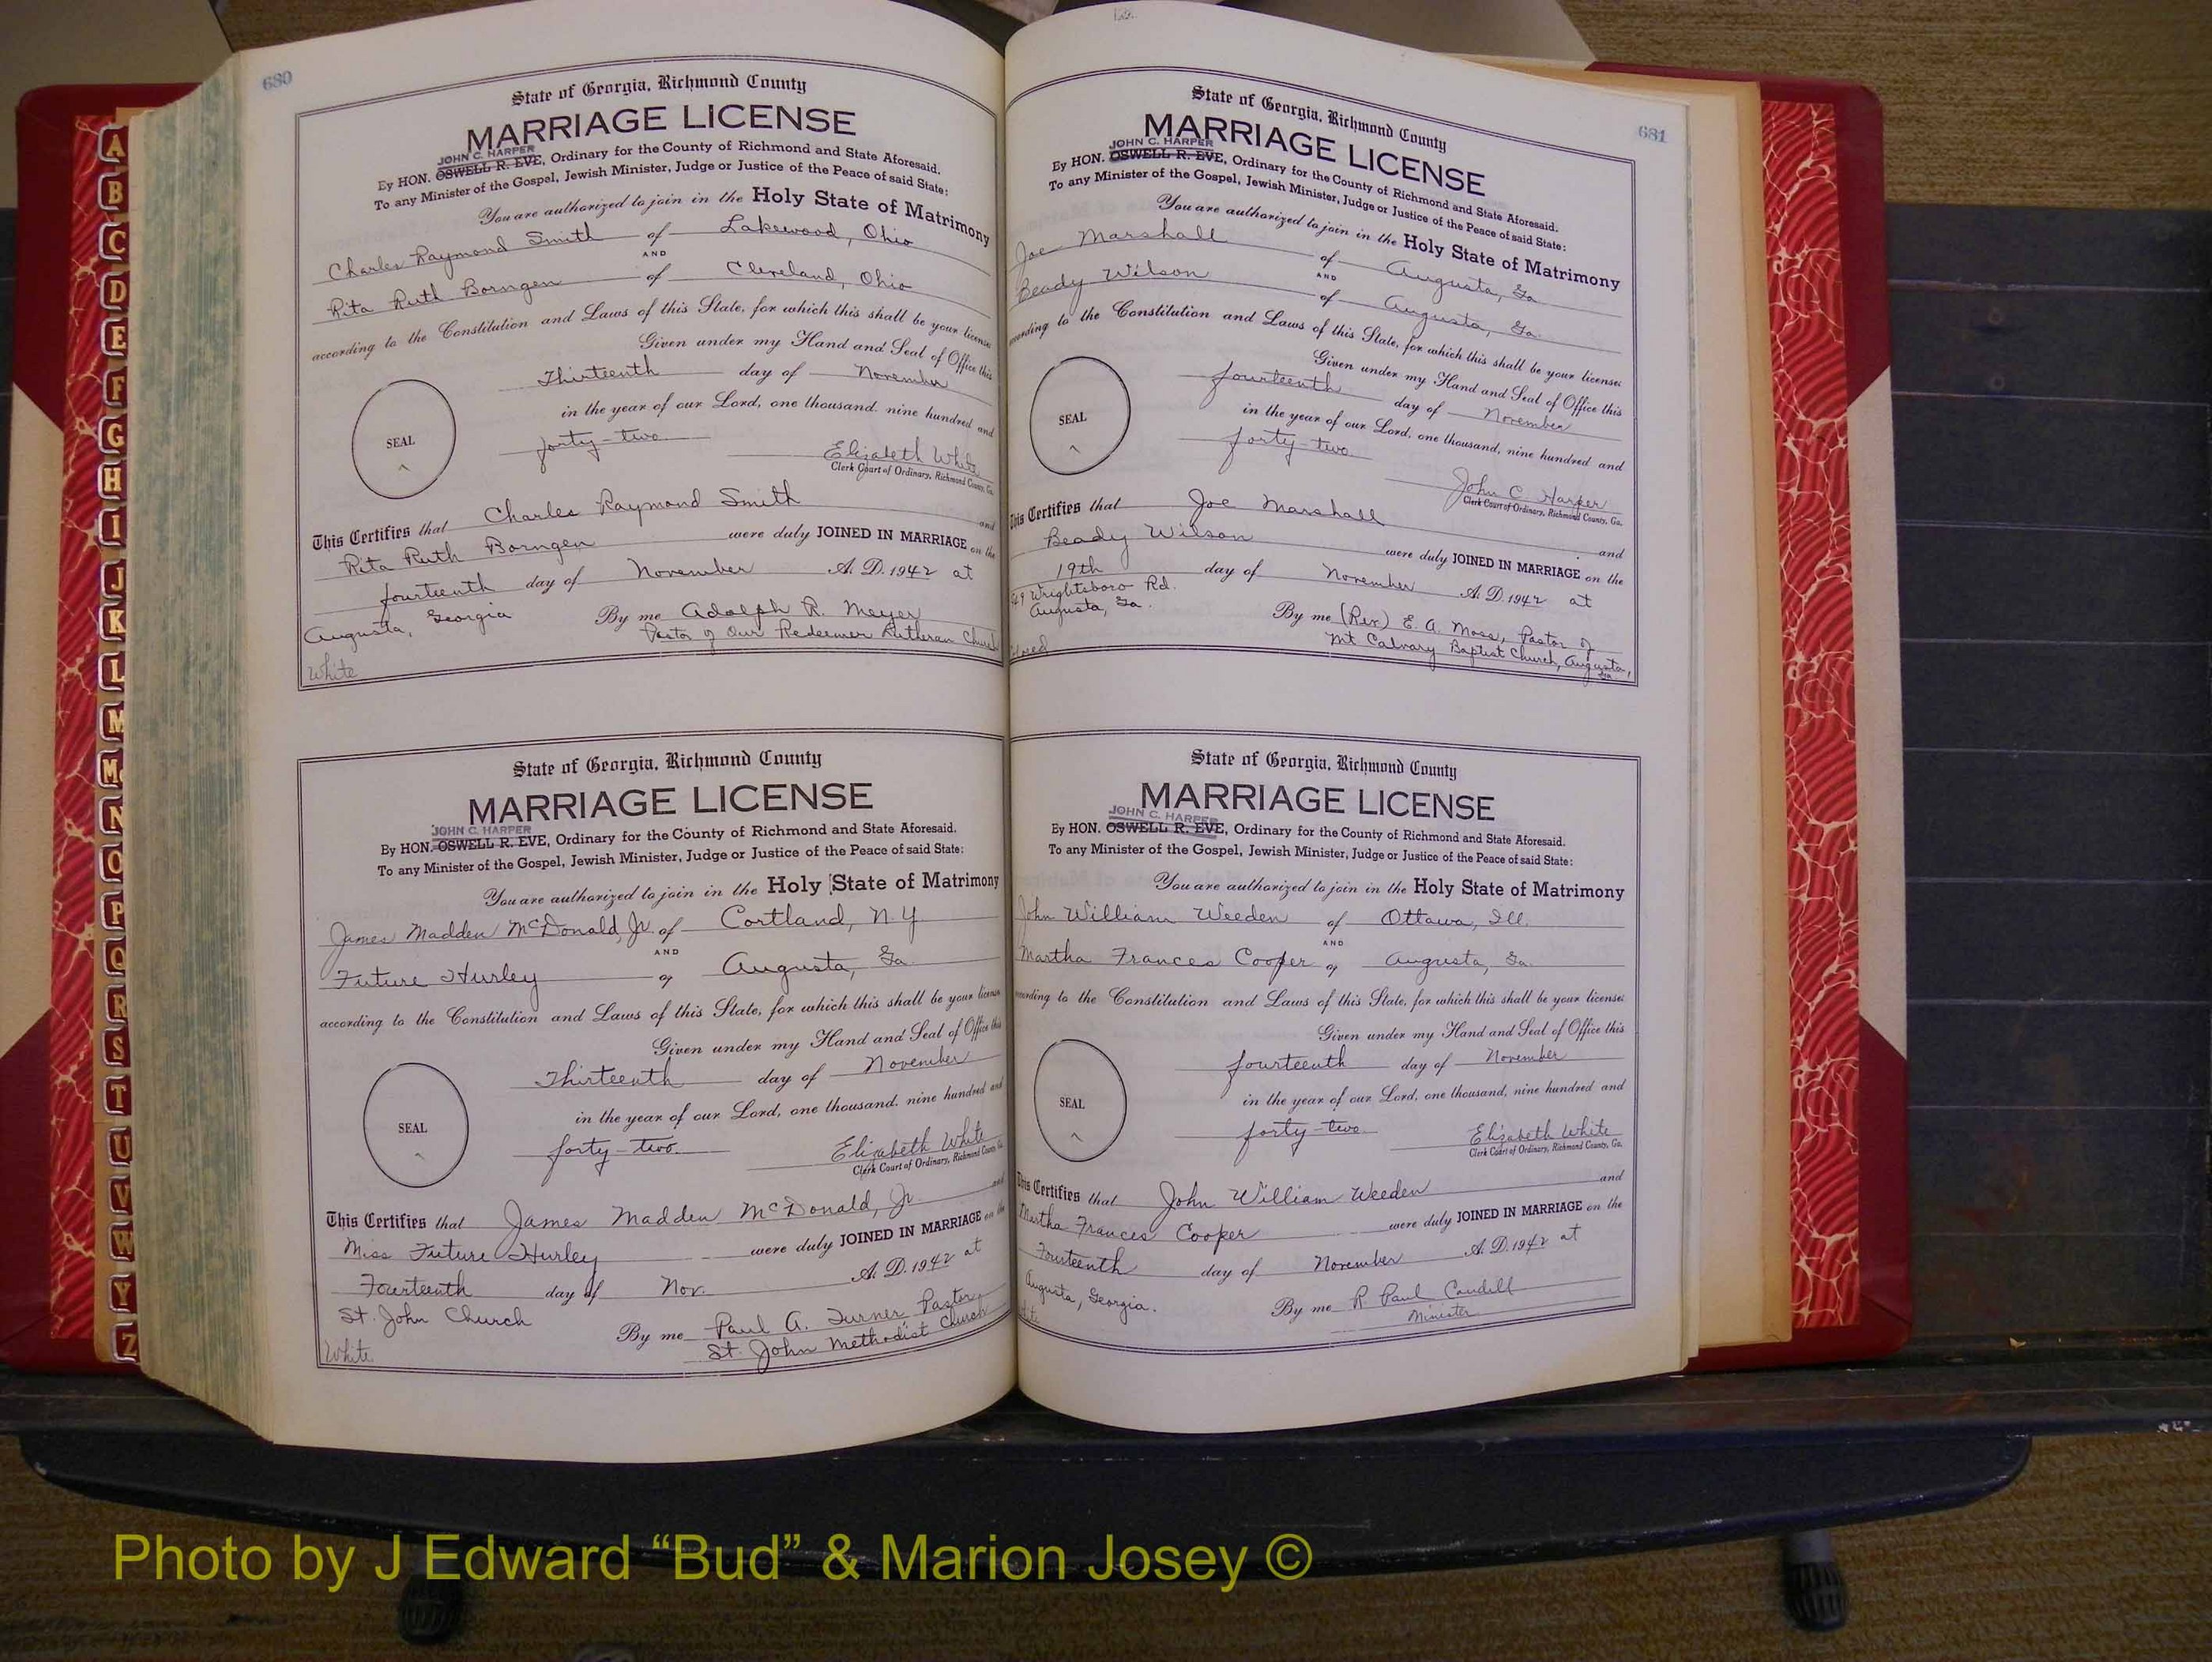 680
State of Georgia, Richmond County
MARRIAGE LICENSE
JOHN C. HARPER
By HON. OSWELL R. EVE, Ordinary for the County of Richmond and State Aforesaid.
To any Minister of the Gospel, Jewish Minister, Judge or Justice of the Peace of said State:
You are authorized to join in the Holy State of Matrimony
Charles Raymond Smith of Lakewood, Ohio
AND
Rita Ruth Borngen of Cleveland, Ohio
according to the Constitution and Laws of this State, for which this shall be your license
Given under my Hand and Seal of Office this
Thirteenth day of November
in the year of our Lord, one thousand, nine hundred and
SEAL
forty-two
Elizabeth White
Clerk Court of Ordinary, Richmond County, Ga.
This Certifies that Charles Raymond Smith and
Rita Ruth Borngen were duly JOINED IN MARRIAGE on the
fourteenth day of November A. D. 1942 at
Augusta, Georgia By me Adolph R. Meyer
Pastor of Our Redeemer Lutheran Church
White
State of Georgia, Richmond County
MARRIAGE LICENSE
JOHN C. HARPER
By HON. OSWELL R. EVE, Ordinary for the County of Richmond and State Aforesaid.
To any Minister of the Gospel, Jewish Minister, Judge or Justice of the Peace of said State:
You are authorized to join in the Holy State of Matrimony
James Madden McDonald, Jr. of Cortland, N.Y.
AND
Future Hurley of Augusta, Ga.
according to the Constitution and Laws of this State, for which this shall be your license
Given under my Hand and Seal of Office this
Thirteenth day of November
in the year of our Lord, one thousand, nine hundred and
SEAL
forty-two.
Elizabeth White
Clerk Court of Ordinary, Richmond County, Ga.
This Certifies that James Madden McDonald, Jr. and
Miss Future Hurley were duly JOINED IN MARRIAGE on the
Fourteenth day of Nov. A. D. 1942 at
St. John Church By me Paul A. Turner, Pastor,
St. John Methodist Church
White
681
State of Georgia, Richmond County
MARRIAGE LICENSE
JOHN C. HARPER
By HON. OSWELL R. EVE, Ordinary for the County of Richmond and State Aforesaid.
To any Minister of the Gospel, Jewish Minister, Judge or Justice of the Peace of said State:
You are authorized to join in the Holy State of Matrimony
Joe Marshall of Augusta, Ga.
AND
Beady Wilson of Augusta, Ga.
according to the Constitution and Laws of this State, for which this shall be your license:
Given under my Hand and Seal of Office this
fourteenth day of November
in the year of our Lord, one thousand, nine hundred and
SEAL
forty-two
John C. Harper
Clerk Court of Ordinary, Richmond County, Ga.
This Certifies that Joe Marshall and
Beady Wilson were duly JOINED IN MARRIAGE on the
19th day of November A. D. 1942 at
Wrightsboro Rd.
Augusta, Ga. By me (Rev) E. A. Moss, Pastor of
Mt Calvary Baptist Church, Augusta, Ga.
State of Georgia, Richmond County
MARRIAGE LICENSE
JOHN C. HARPER
By HON. OSWELL R. EVE, Ordinary for the County of Richmond and State Aforesaid.
To any Minister of the Gospel, Jewish Minister, Judge or Justice of the Peace of said State:
You are authorized to join in the Holy State of Matrimony
John William Weeden of Ottawa, Ill.
AND
Martha Frances Cooper of Augusta, Ga.
according to the Constitution and Laws of this State, for which this shall be your license:
Given under my Hand and Seal of Office this
fourteenth day of November
in the year of our Lord, one thousand, nine hundred and
SEAL
forty-two.
Elizabeth White
Clerk Court of Ordinary, Richmond County, Ga.
This Certifies that John William Weeden and
Martha Frances Cooper were duly JOINED IN MARRIAGE on the
Fourteenth day of November A. D. 1942 at
Augusta, Georgia. By me R. Paul Caudill
Minister
A
B
C
D
E
F
G
H
I
J
K
L
M
Mc
N
O
P
Q
R
S
T
U
V
W
Y
Z
Photo by J Edward “Bud” & Marion Josey ©